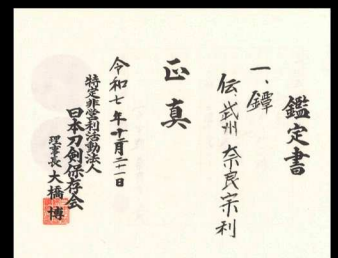 鑑定書
一、鐔
伝、武州 奈良宗利
正真
令和七年十月二十一日
特定非営利活動法人
日本刀剣保存会
理事長 大橋 博